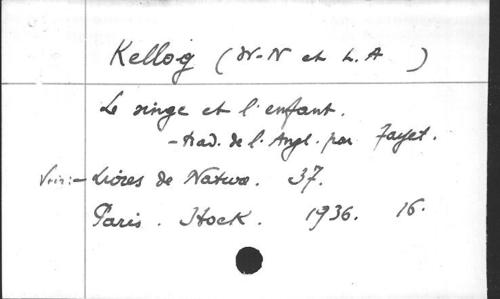 Kellog (W-N et L.A )
Le singe et l'enfant.
- trad. de l'Angl. par Fayet.
Voir:- Livres de Nature. 37.
Paris. Stock. 1936. 16.